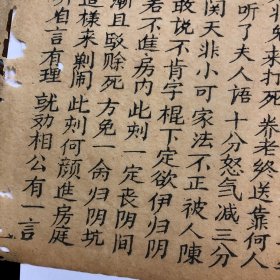 兔来抖死 养老终送靠何人
听了夫人语 十分怒气减三分
関天非小可 家法不正被人陳
敢说不肯字 棍下定欲伊归阴
若不進房内 此刻一定丧阴间
渐且駁賒死 方免一命归阴坑
這様来剃闹 此刻何颜進房庭
自言有理 就劝相公有一言